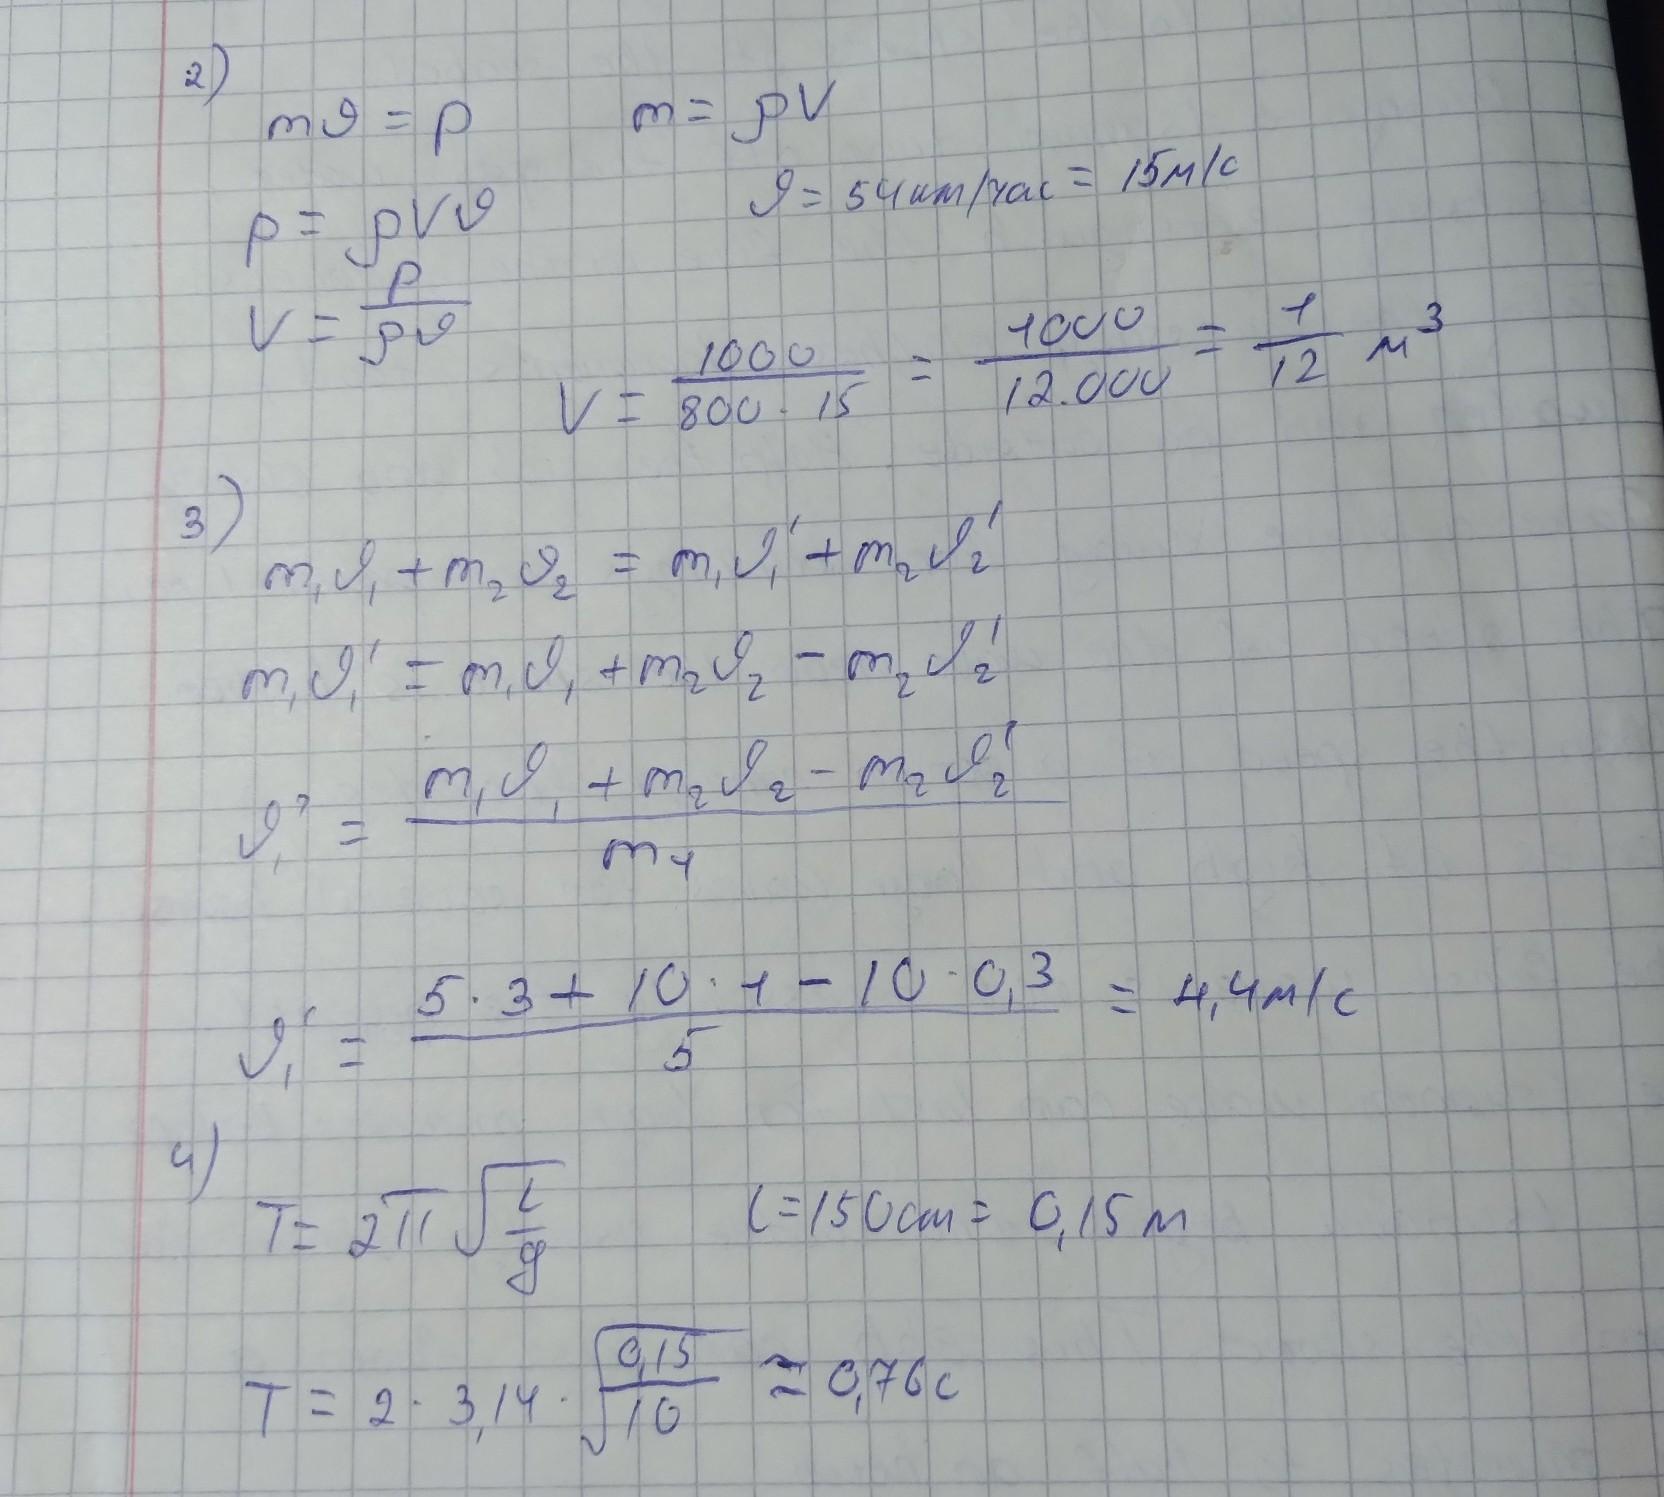 2)
mϑ = p m = ρV
p = ρVϑ ϑ = 54 км/час = 15 м/с
V = p/ρϑ
V = 1000/800 · 15 = 1000/12.000 = 1/12 м³
3)
m₁ϑ₁ + m₂ϑ₂ = m₁ϑ₁' + m₂ϑ₂'
m₁ϑ₁' = m₁ϑ₁ + m₂ϑ₂ - m₂ϑ₂'
ϑ₁' = m₁ϑ₁ + m₂ϑ₂ - m₂ϑ₂'/m₁
ϑ₁' = 5 · 3 + 10 · 1 - 10 · 0,3/5 = 4,4 м/с
4)
T = 2π√(l/g) l = 150 см = 0,15 м
T = 2 · 3,14 · √(0,15/10) ≈ 0,76 с